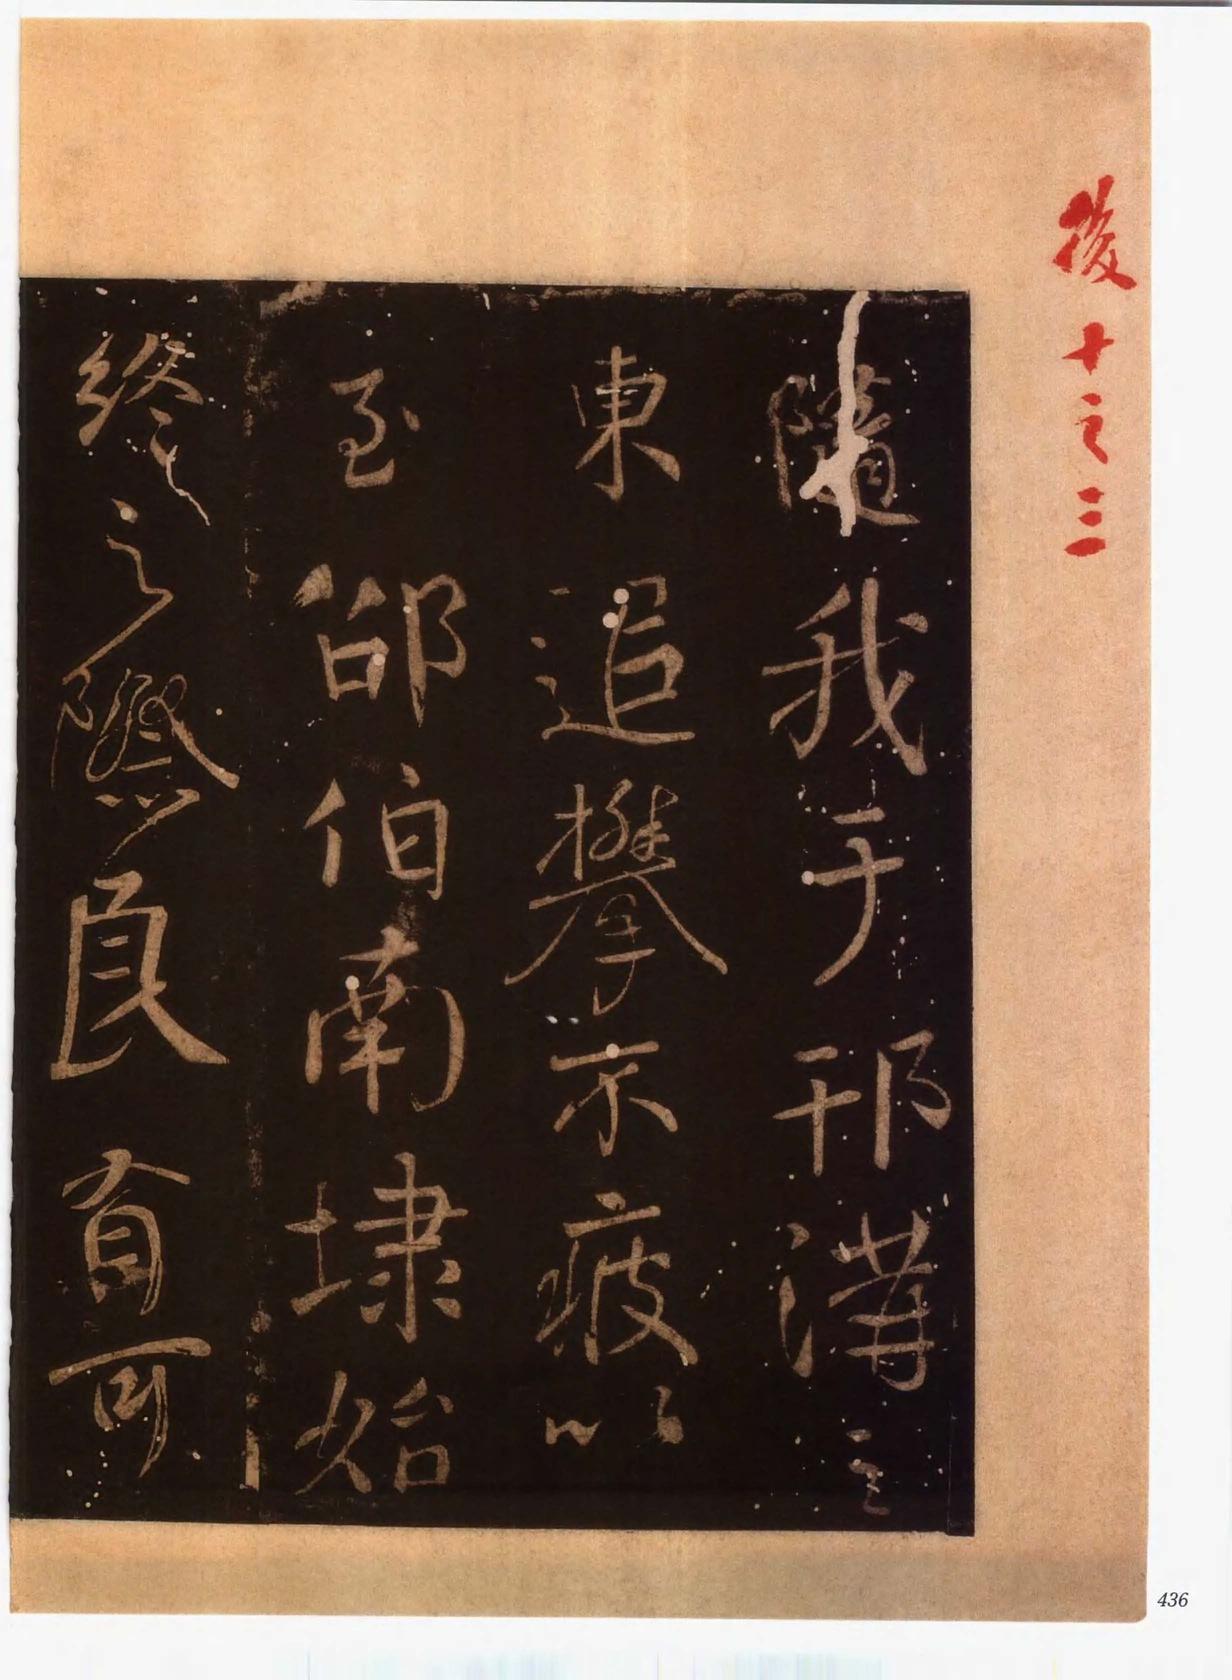 後十之三
隨我于邗溝之
東追攀不疲以
至邵伯南埭始
終之際良有可
436